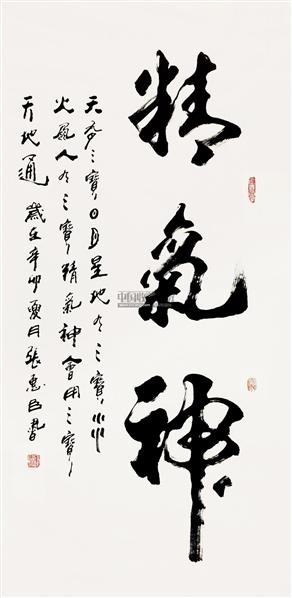 精氣神
天有三寶日月星地有三寶水
火風人有三寶精氣神會用三寶
天地通 歲在辛卯夏月張惠臣書